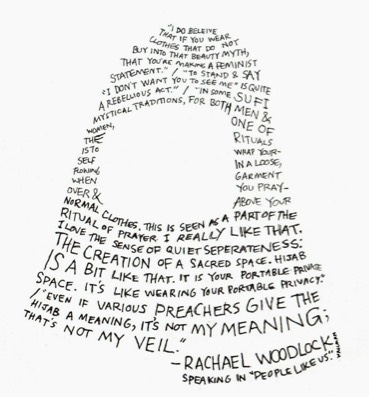 "I DO BELEIVE
THAT IF YOU WEAR
CLOTHES THAT DO NOT
BUY INTO THAT BEAUTY MYTH,
THAT YOU'RE MAKING A FEMINIST
STATEMENT." / "TO STAND & SAY
"I DON'T WANT YOU TO SEE ME" IS QUITE
A REBELLIOUS ACT." / "IN SOME SUFI
MYSTICAL TRADITIONS, FOR BOTH MEN &
WOMEN, ONE OF
THE RITUALS
IS TO WRAP YOUR-
SELF IN A LOOSE,
FLOWING GARMENT
WHEN YOU PRAY-
OVER & ABOVE YOUR
NORMAL CLOTHES. THIS IS SEEN AS A PART OF THE
RITUAL OF PRAYER. I REALLY LIKE THAT.
I LOVE THE SENSE OF QUIET SEPERATENESS:
THE CREATION OF A SACRED SPACE. HIJAB
IS A BIT LIKE THAT. IT IS YOUR PORTABLE PRIVATE
SPACE. IT'S LIKE WEARING YOUR PORTABLE PRIVACY."
/ "EVEN IF VARIOUS PREACHERS GIVE THE
HIJAB A MEANING, IT'S NOT MY MEANING;
THAT'S NOT MY VEIL."
- RACHAEL WOODLOCK
SPEAKING IN "PEOPLE LIKE US".